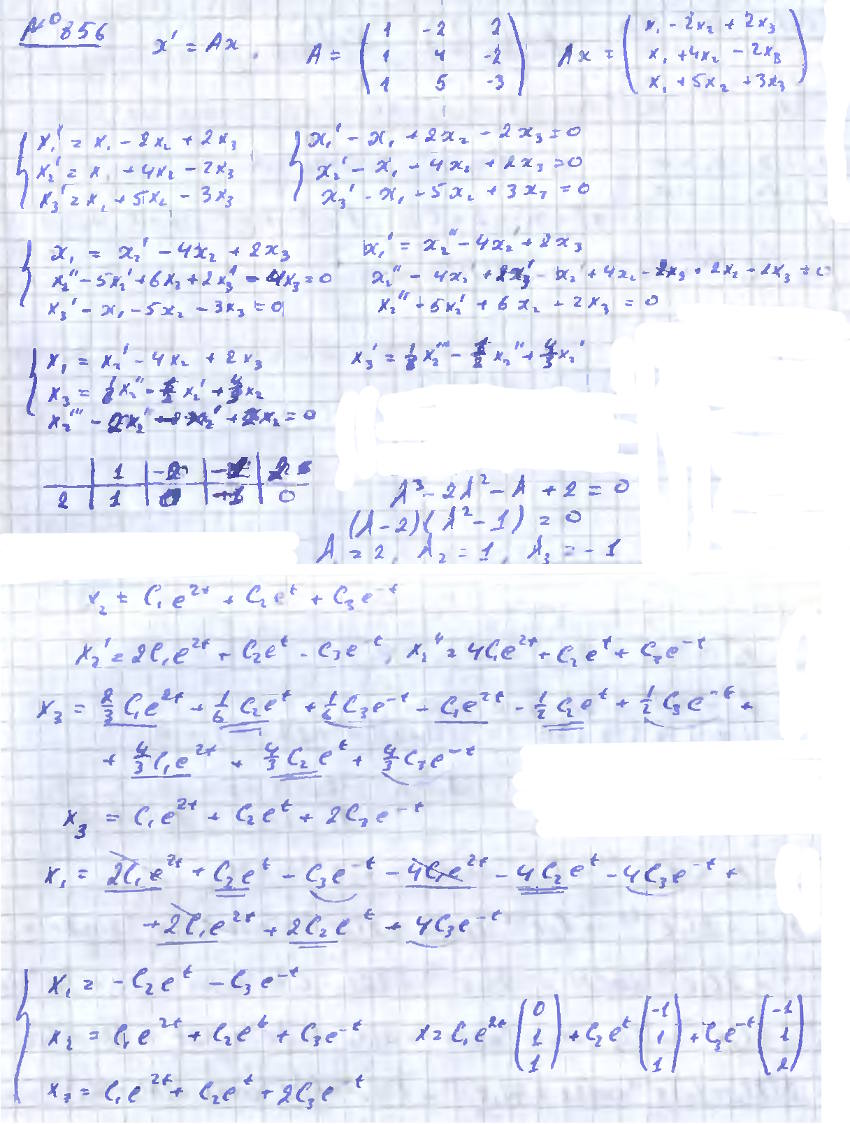 № 856
x' = Ax. A = ( 1 -2 2 ; 1 4 -2 ; 1 5 -3 ) Ax = ( x₁ - 2x₂ + 2x₃ ; x₁ + 4x₂ - 2x₃ ; x₁ + 5x₂ + 3x₃ )
x₁' = x₁ - 2x₂ + 2x₃ x₁' - x₁ + 2x₂ - 2x₃ = 0
x₂' = x₁ + 4x₂ - 2x₃ x₂' - x₁ - 4x₂ + 2x₃ = 0
x₃' = x₁ + 5x₂ - 3x₃ x₃' - x₁ - 5x₂ + 3x₃ = 0
x₁ = x₂' - 4x₂ + 2x₃ x₁' = x₂'' - 4x₂' + 2x₃
x₂'' - 5x₂' + 6x₂ + 2x₃' - 4x₃ = 0 x₂'' - 4x₂' + 2x₃' - x₂' + 4x₂ - 2x₃ + 2x₂ - 2x₃ = 0
x₃' - x₁ - 5x₂ - 3x₃ = 0 x₂'' + 5x₂' + 6x₂ + 2x₃ = 0
x₁ = x₂' - 4x₂ + 2x₃
x₃ = x₂'' - x₂' + x₂
x₂''' - x₂'' x₂' + 2x₂ = 0
1 -2 -1 2
2 1 0 -1 0
λ³ - 2λ² - λ + 2 = 0
(λ-2)(λ²-1) = 0
λ = 2, λ₂ = 1, λ₃ = -1
x₂ = C₁e²ᵗ + C₂eᵗ + C₃e⁻ᵗ
x₂' = 2C₁e²ᵗ + C₂eᵗ - C₃e⁻ᵗ, x₂'' = 4C₁e²ᵗ + C₂eᵗ + C₃e⁻ᵗ
x₃ = 2/3 C₁e²ᵗ + 1/6 C₂eᵗ + 1/6 C₃e⁻ᵗ - C₁e²ᵗ - 1/2 C₂eᵗ + 1/2 C₃e⁻ᵗ +
+ 4/3 C₁e²ᵗ + 4/3 C₂eᵗ + 4/3 C₃e⁻ᵗ
x₃ = C₁e²ᵗ + C₂eᵗ + 2C₃e⁻ᵗ
x₁ = 2C₁e²ᵗ + C₂eᵗ - C₃e⁻ᵗ - 4C₁e²ᵗ - 4C₂eᵗ - 4C₃e⁻ᵗ +
+ 2C₁e²ᵗ + 2C₂eᵗ + 4C₃e⁻ᵗ
x₁ = -C₂eᵗ - C₃e⁻ᵗ
x₂ = C₁e²ᵗ + C₂eᵗ + C₃e⁻ᵗ x = C₁e²ᵗ ( 0 ; 1 ; 1 ) + C₂eᵗ ( -1 ; 1 ; 1 ) + C₃e⁻ᵗ ( -1 ; 1 ; 2 )
x₃ = C₁e²ᵗ + C₂eᵗ + 2C₃e⁻ᵗ